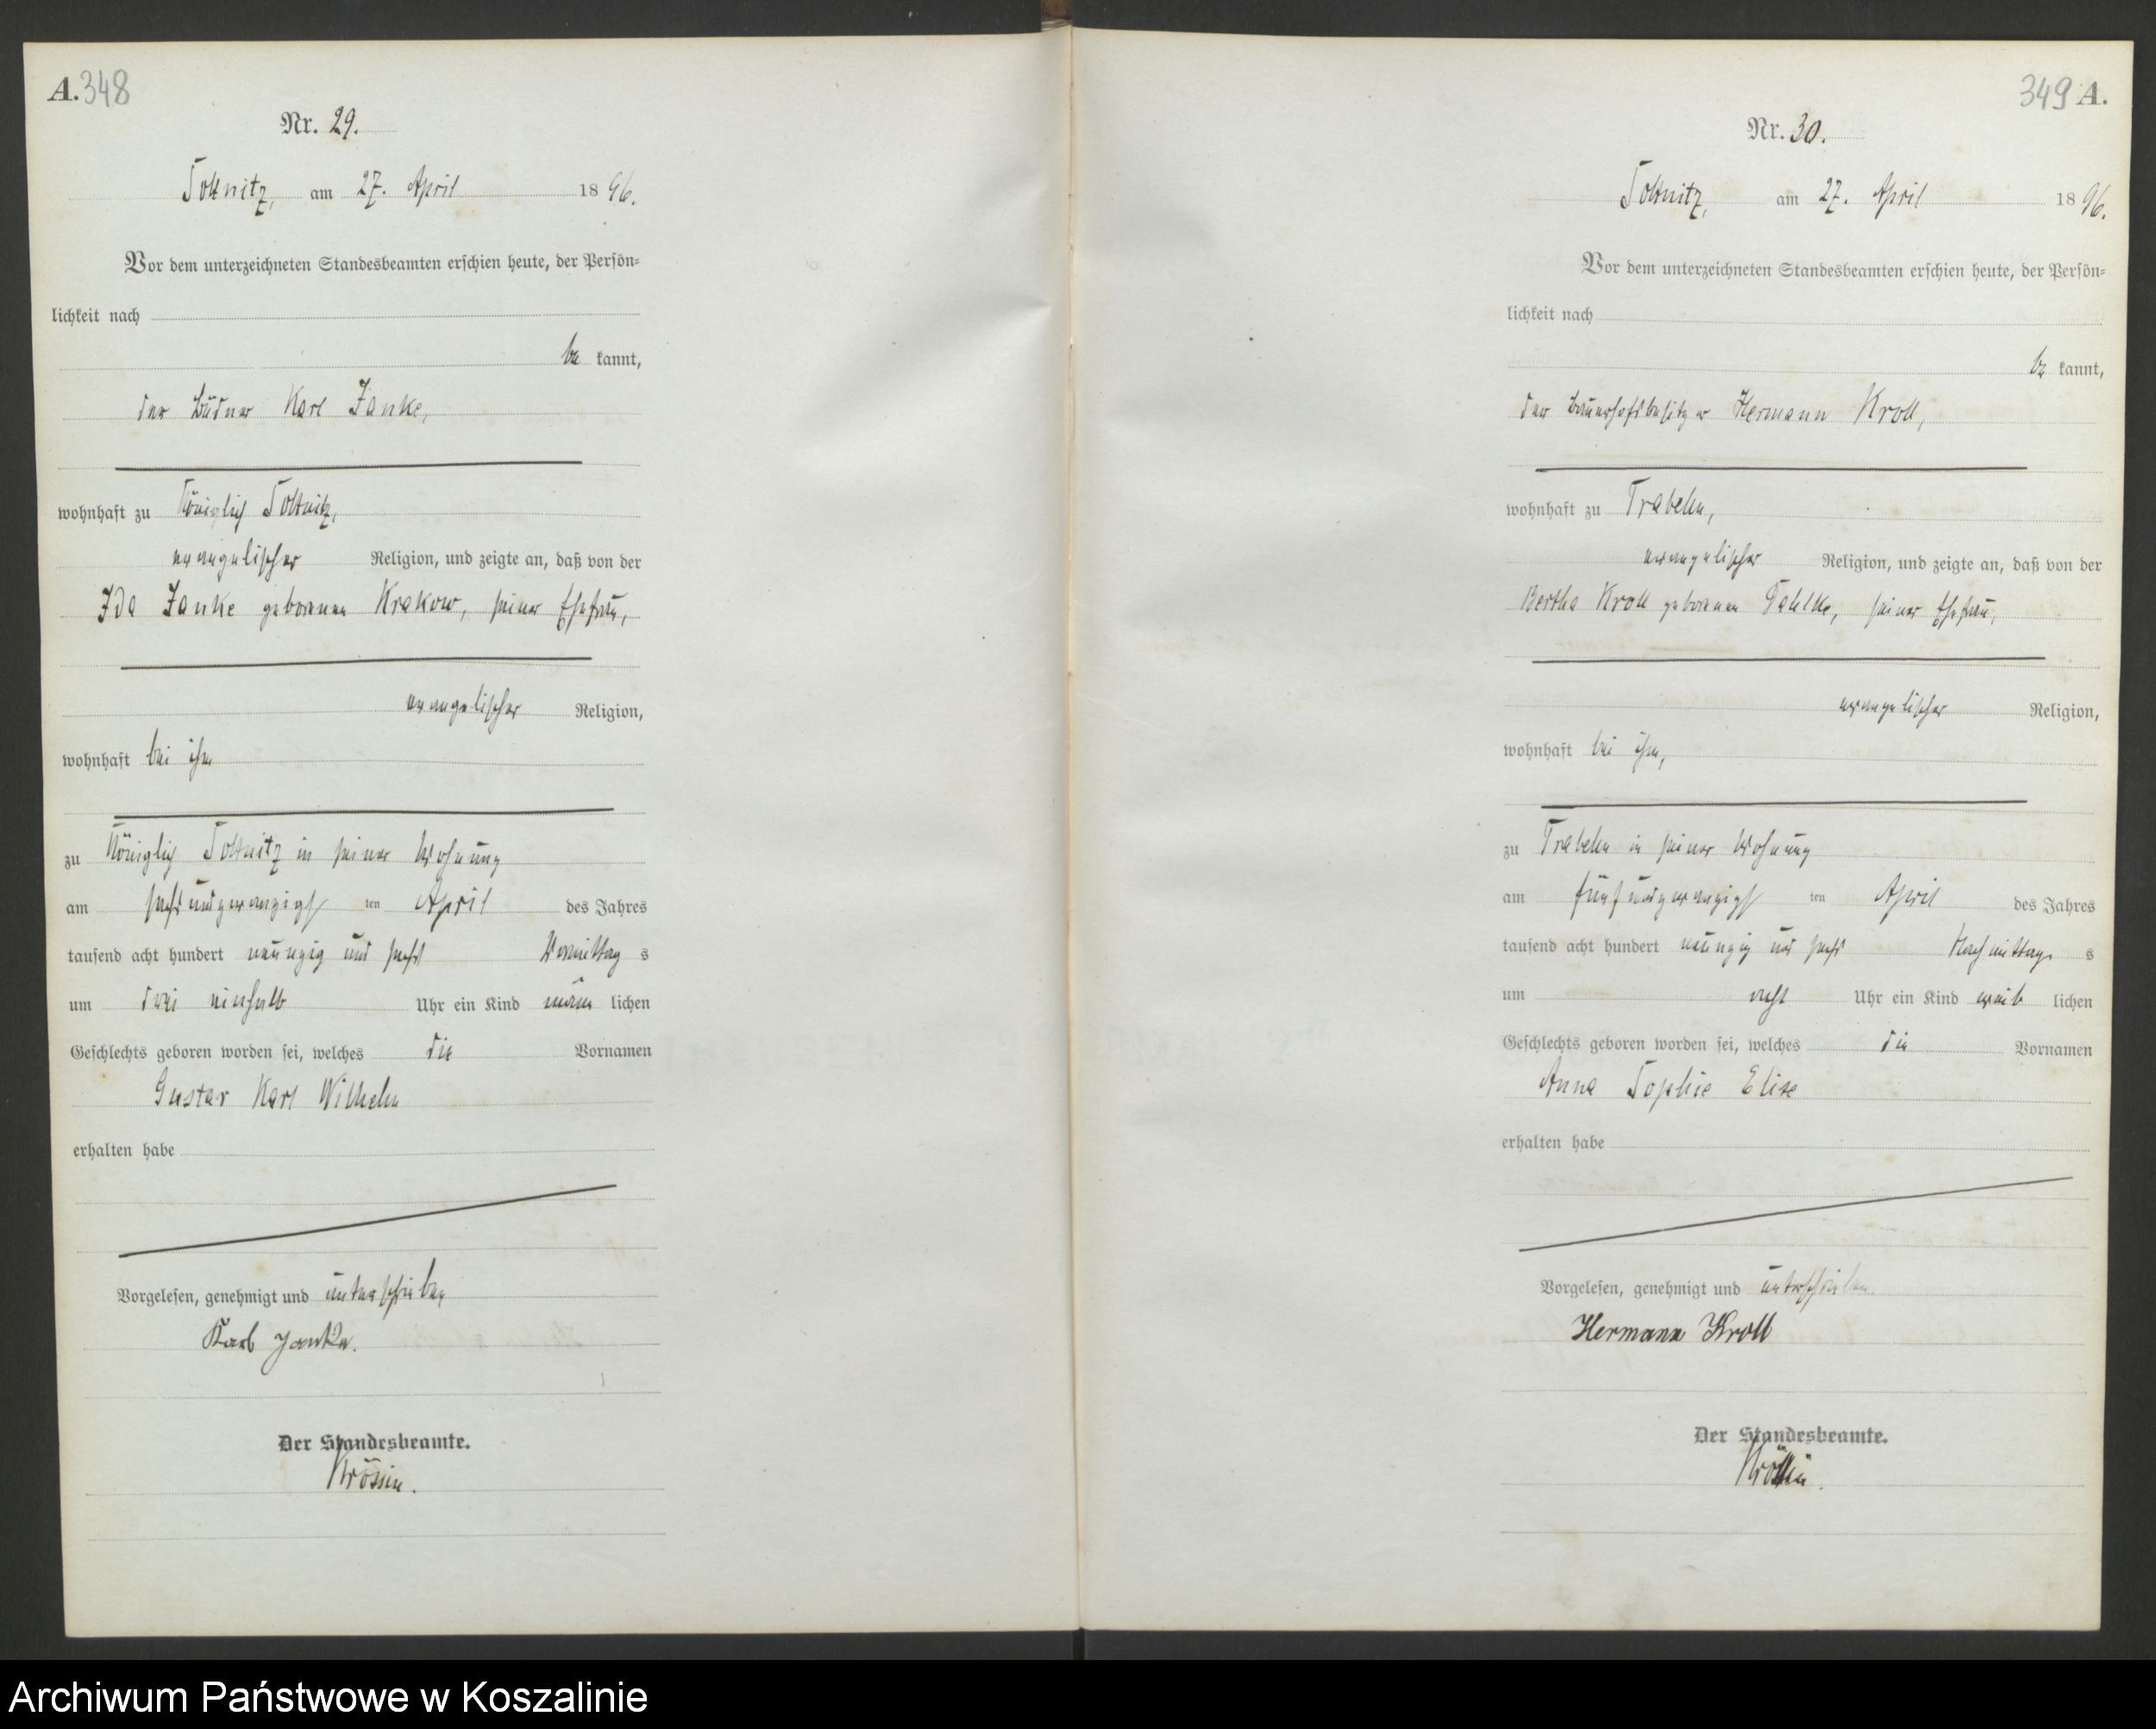 A. 348
Nr. 29.
Soltnitz, am 27. April 1896.
Vor dem unterzeichneten Standesbeamten erschien heute, der Persön-
lichkeit nach
be kannt,
der Büdner Karl Janke,
wohnhaft zu Königlich Soltnitz,
evangelischer Religion, und zeigte an, daß von der
Ida Janke geborenen Krakow, seiner Ehefrau,
evangelischer Religion,
wohnhaft bei ihm
zu Königlich Soltnitz in seiner Wohnung
am sechsundzwanzigsten April des Jahres
tausend acht hundert neunzig und sechs Vormittag s
um drei einhalb Uhr ein Kind männ lichen
Geschlechts geboren worden sei, welches die Vornamen
Gustav Karl Wilhelm
erhalten habe
Vorgelesen, genehmigt und unterschrieben
Karl Janke.
Der Standesbeamte.
Krössin.
349 A.
Nr. 30.
Soltnitz, am 27. April 1896.
Vor dem unterzeichneten Standesbeamten erschien heute, der Persön-
lichkeit nach
be kannt,
der Bauerhofsbesitzer Hermann Kroll,
wohnhaft zu Trabehn,
evangelischer Religion, und zeigte an, daß von der
Bertha Kroll geborenen Fahlke, seiner Ehefrau,
evangelischer Religion,
wohnhaft bei ihm,
zu Trabehn in seiner Wohnung
am fünfundzwanzigsten April des Jahres
tausend acht hundert neunzig und sechs Nachmittag s
um acht Uhr ein Kind weib lichen
Geschlechts geboren worden sei, welches die Vornamen
Anna Sophie Elise
erhalten habe
Vorgelesen, genehmigt und unterschrieben.
Hermann Kroll
Der Standesbeamte.
Krössin.
Archiwum Państwowe w Koszalinie